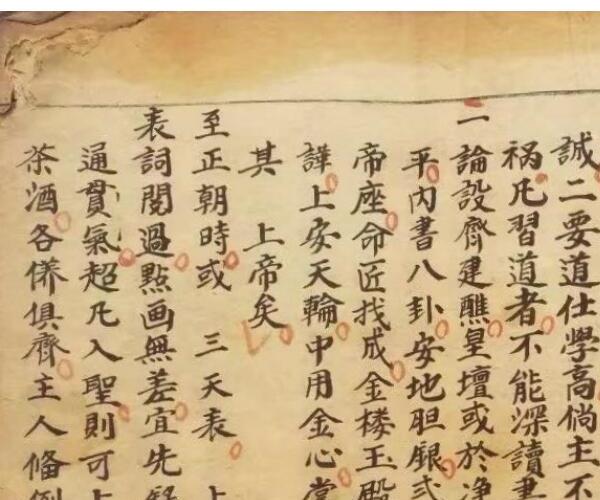 誠二要道仕學高倘主不
禍凡習道者不能深讀書
一論設齊建醮星壇或於淨
平內書八卦安地胆銀式
帝座命匠找成金楼玉殿
諱上安天輪中用金心當
其 上帝矣
至正朝時或 三天表 上
表詞閱過點画無差宜先
通貫氣超凡入聖則可上
茶酒各俻俱齊主人俻